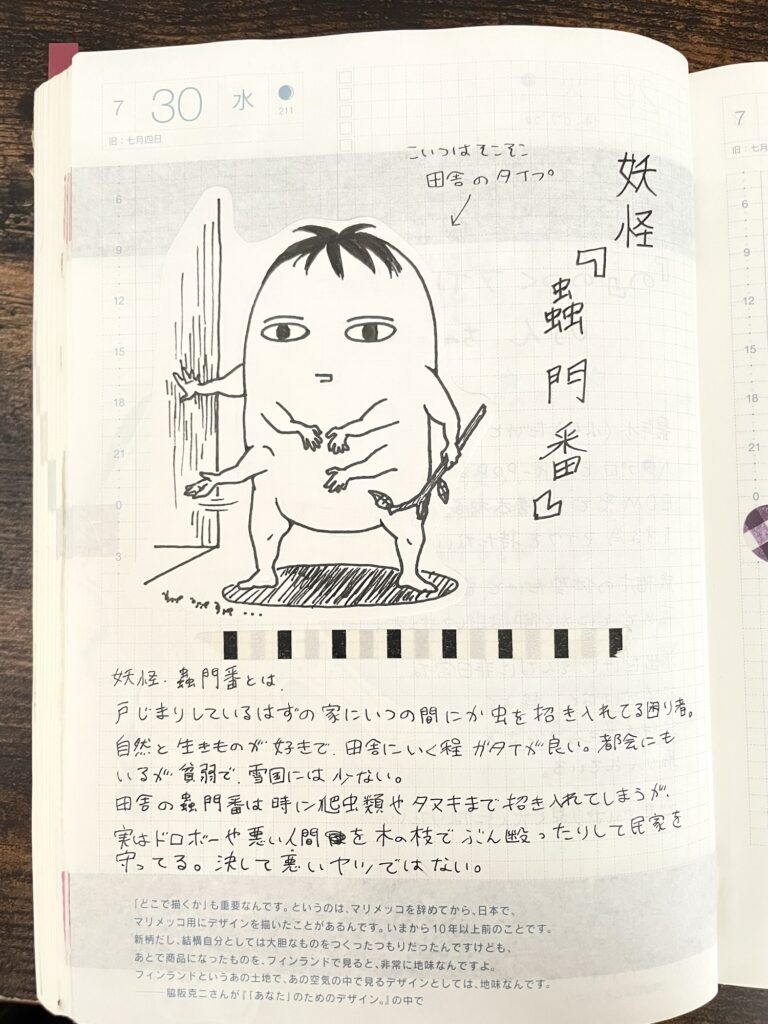 7 30 水
211
旧:七月四日
こいつはそこそこ
田舎のタイプ
妖怪
『蟲門番』
6
9
12
15
18
21
0
3
妖怪・蟲門番とは、
戸じまりしているはずの家にいつの間にか虫を招き入れてる困り者。
自然と生きものが好きで、田舎にいく程ガタイが良い。都会にも
いるが貧弱で、雪国には少ない。
田舎の蟲門番は時に爬虫類やタヌキまで招き入れてしまうが、
実はドロボーや悪い人間を木の枝でぶん殴ったりして民家を
守ってる。決して悪いヤツではない。
「どこで描くか」も重要なんです。というのは、マリメッコを辞めてから、日本で、
マリメッコ用にデザインを描いたことがあるんです。いまから10年以上前のことです。
新柄だし、結構自分としては大胆なものをつくったつもりだったんですけども、
あとで商品になったものを、フィンランドで見ると、非常に地味なんですよ。
フィンランドというあの土地で、あの空気の中で見るデザインとしては、地味なんです。
——脇阪克二さんが『「あなた」のためのデザイン。』の中で
7
旧:七
6
9
12
15
18
21
0